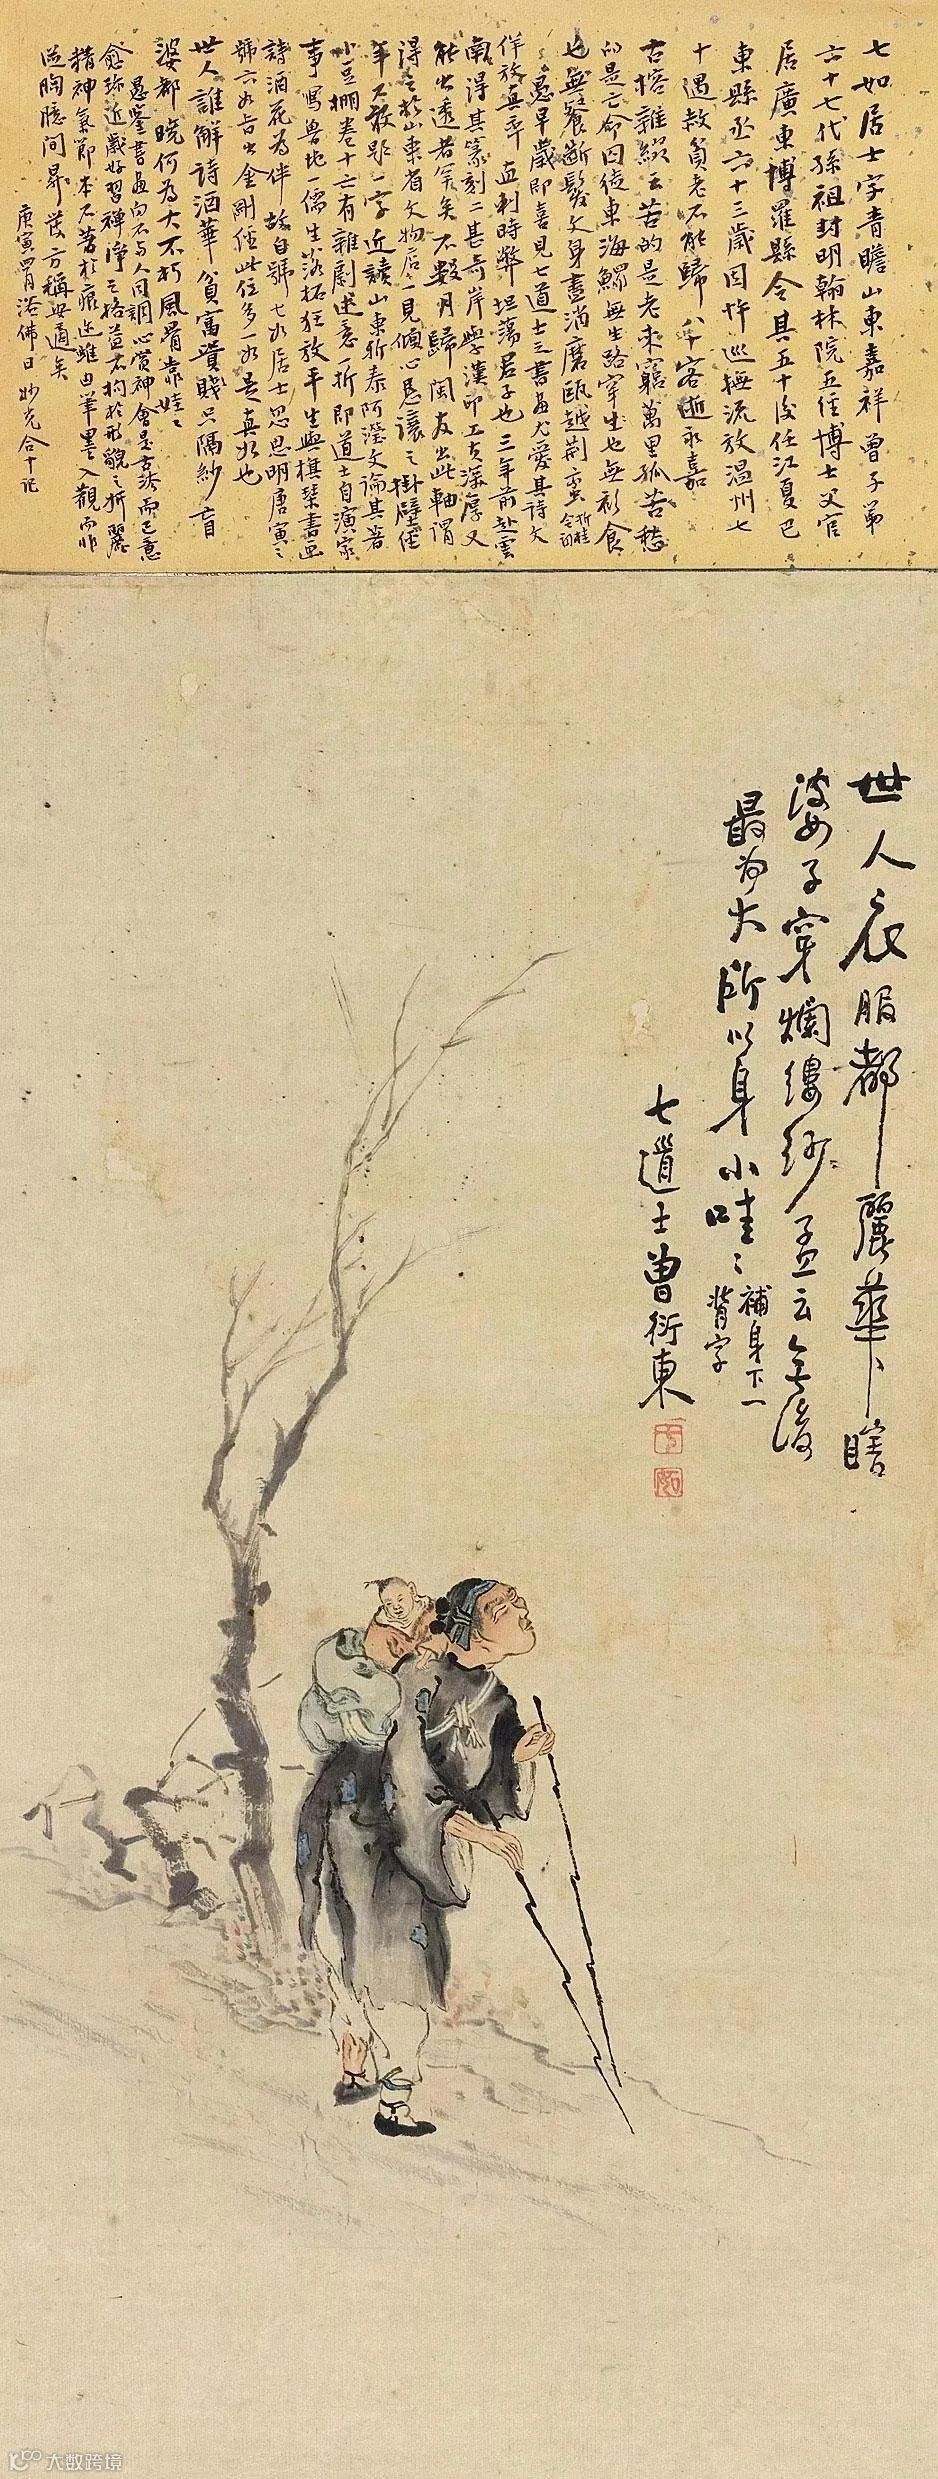 七如居士字青瞻山東嘉祥曾子第
六十七代孫祖封明翰林院五經博士父官
居廣東博羅縣令其五十後任江夏巴
東縣丞六十三歲因忤巡撫流放温州七
十遇赦貧老不能歸八十客逝永嘉
古榕雜綴云苦的是老來窮萬里孤苦愁
的是亡命囚徒東海鰥無生路窄生也無衫食
也無餐斷髮文身盡消磨甌越荆蛮
愚早歲即喜見七道士之書畫尤愛其詩文
作放真率直刺時弊坦蕩君子也三年前赴雲
南得其篆刻二甚奇岸學漢印工夫深厚又
能出透者矣不數月歸閩友出此軸謂
得之於山東省文物店一見傾心恳讓之掛壁經
年不敢題一字近讀山東新泰阿瀅文論其著
小豆棚卷十六有雜劇述意一折即道士自演家
事寫魯地一儒生落拓狂放平生與棋琴書画
詩酒花為伴故自號七如居士忽思明唐寅之
號六如旨出金剛經此任多一如是真如也
世人誰解詩酒華貧富貴賤只隔紗盲
婆都曉何為大不朽風骨靠娃娃
愚鑒書畫向不与人同調心賞神會是古法而已意
愈弥近歲好習禪净之格益不拘於形貌之折麗
精神氣節本不著於痕迹雖由筆墨入觀而非
從胸臆間昇發方稱安適矣
庚寅胃月浴佛日妙光合十記
世人衣服都麗華瞎
婆子穿爛縷紗孟云無後
最為大所以身小哇哇
補身下一
背字
七道士曾衍東